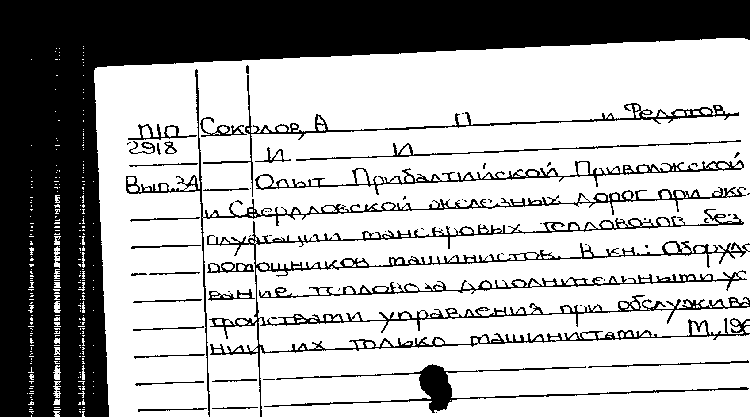 П/О Соколов, А П и Федотов,
2918 И И
Вып.34 Опыт Прибалтийской, Приволжской
и Свердловской железных дорог при экс-
плуатации маневровых тепловозов без
помощников машинистов. В кн.: Оборудо
вание тепловоза дополнительными ус
тройствами управления при обслужива
нии их только машинистами. М., 196